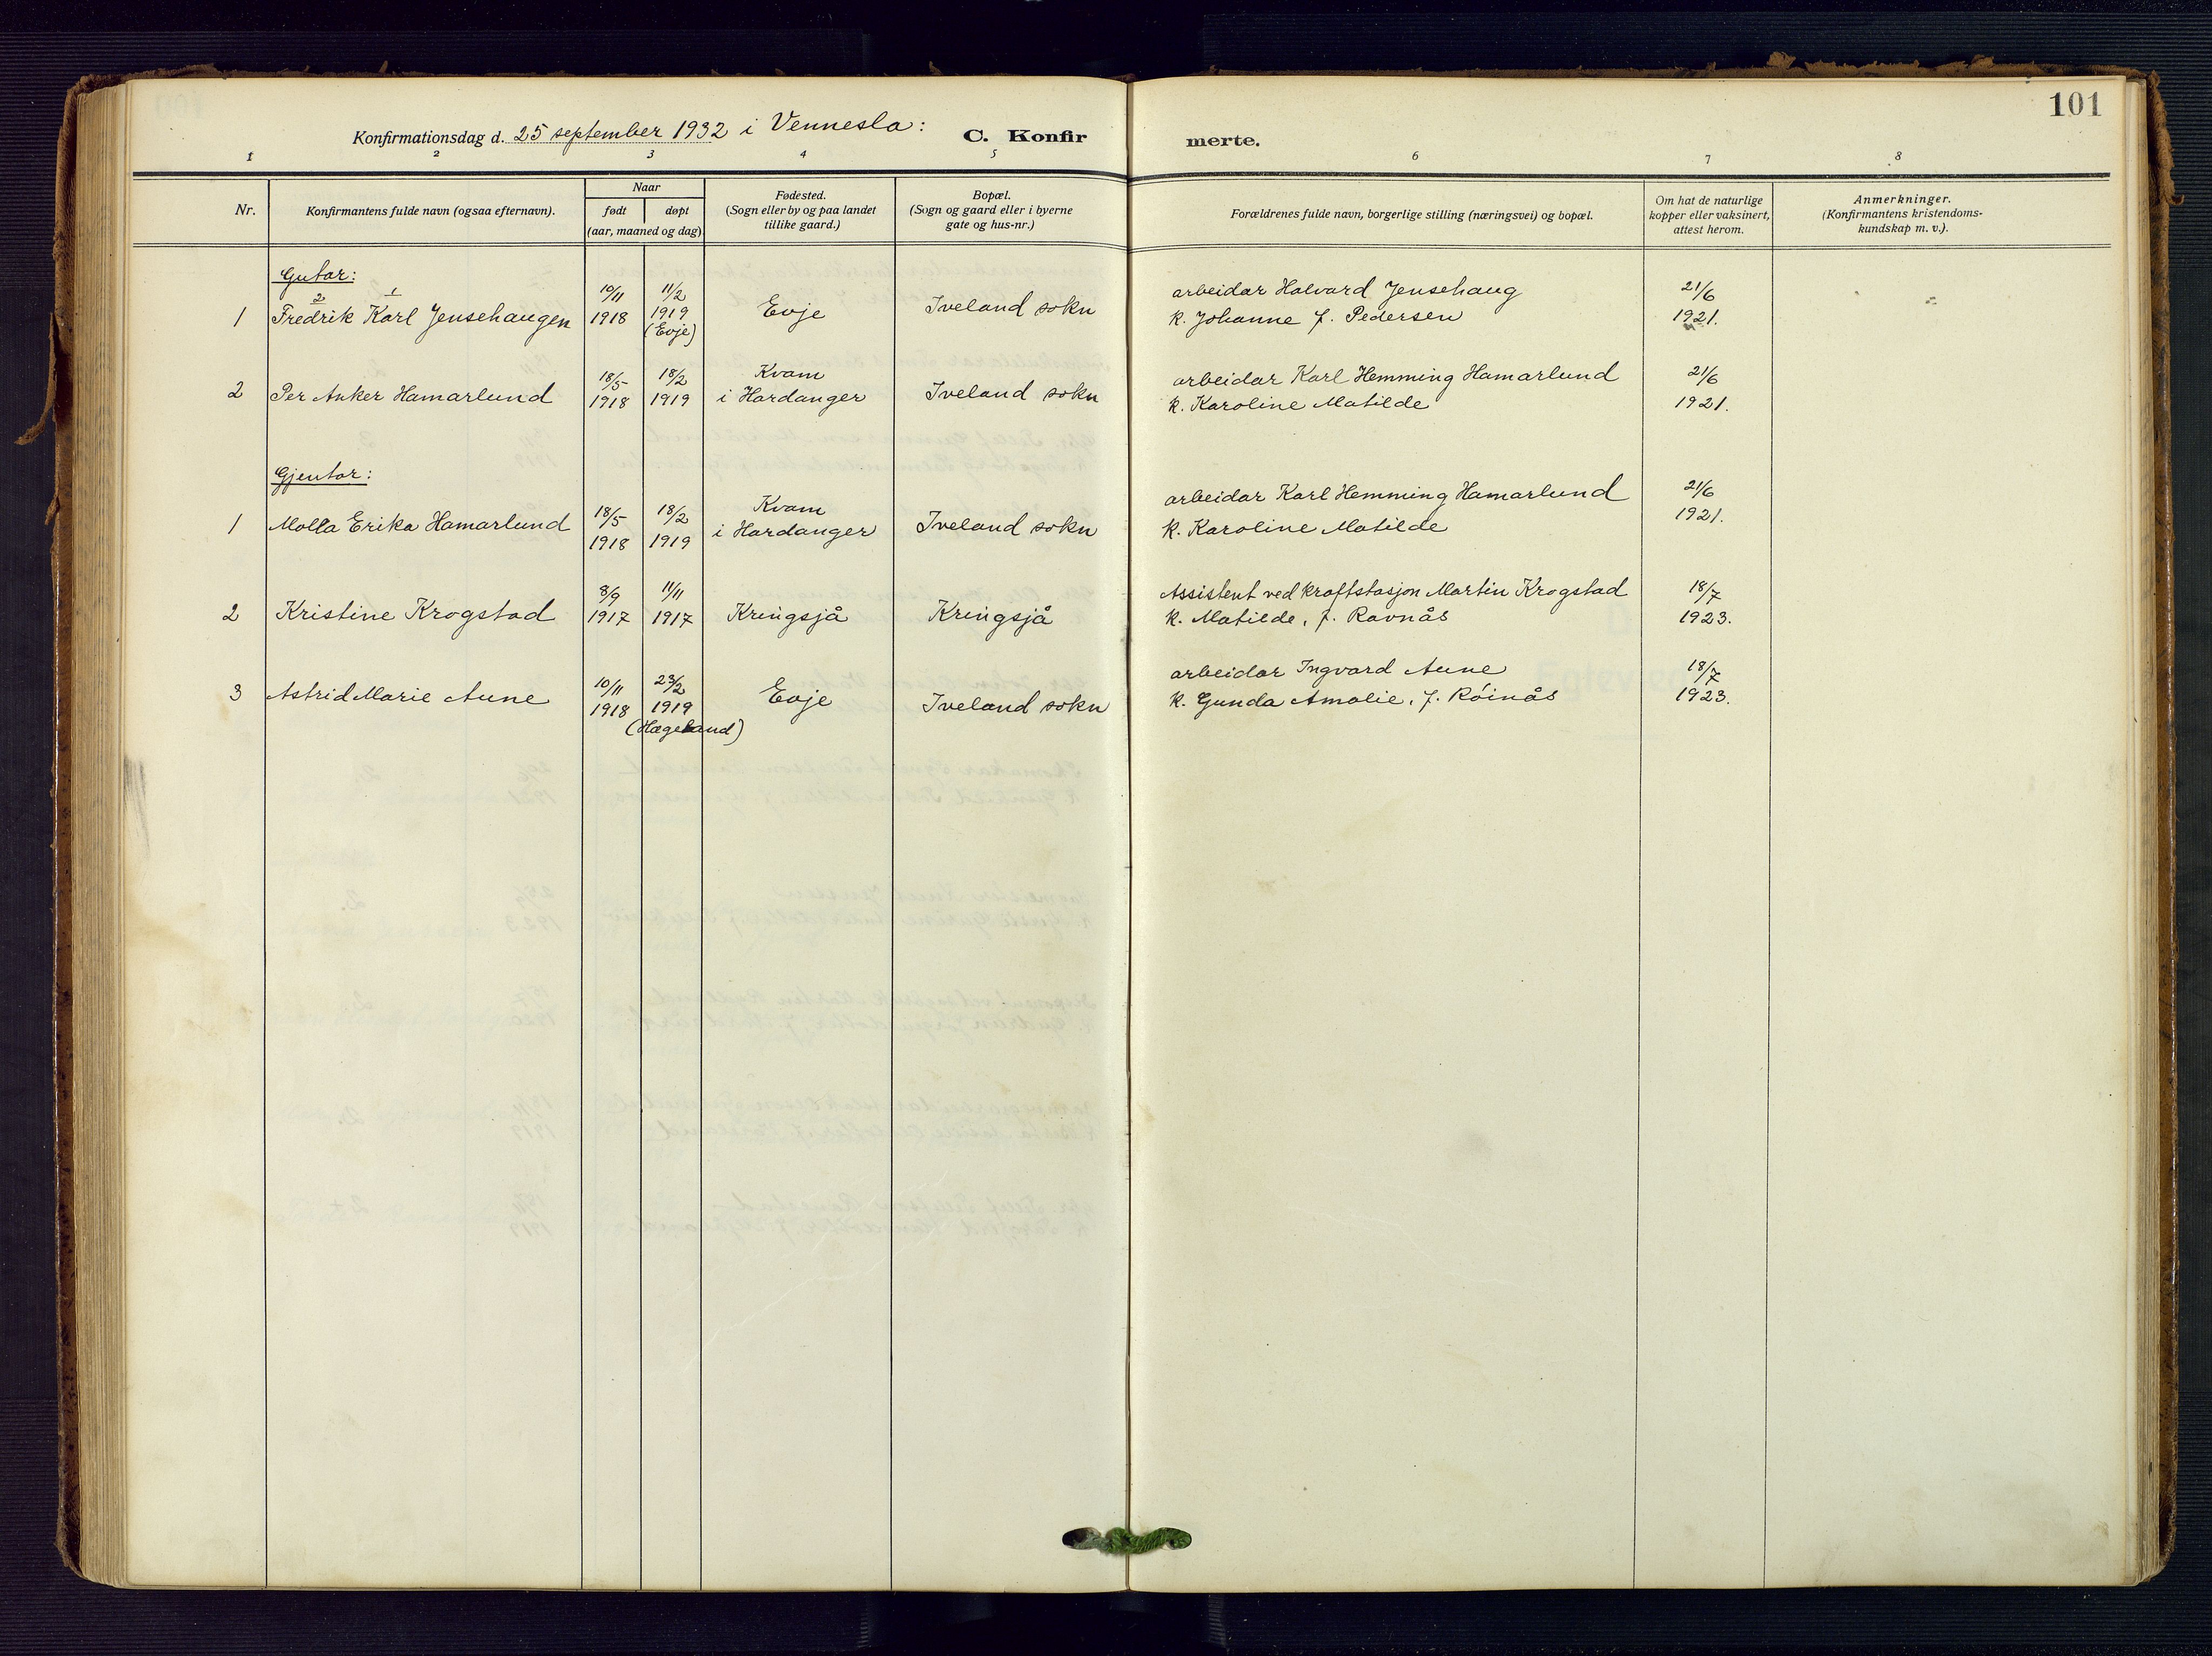 101
Konfirmationsdag d. 25 september 1932 i Vennesla:
C. Konfir merte.
1 2 3 4 5 6 7 8
Nr.
Konfirmantens fulde navn (ogsaa efternavn).
Naar
født døpt
(aar, maaned og dag)
Fødested.
(Sogn eller by og paa landet
tillike gaard.)
Bopæl.
(Sogn og gaard eller i byerne
gate og hus-nr.)
Forældrenes fulde navn, borgerlige stilling (næringsvei) og bopæl.
Om hat de naturlige
kopper eller vaksinert,
attest herom.
Anmerkninger.
(Konfirmantens kristendoms-
kundskap m. v.).
Gutar:
2 1
10/11 11/2 arbeidar Halvard Jensehaug 21/6
1 Fredrik Karl Jensehaugen 1918 1919 Evje Iveland sokn k. Johanne f. Pedersen 1921.
(Evje)
18/5 18/2 Kvam arbeidar Karl Hemming Hamarlund 21/6
2 Per Anker Hamarlund 1918 1919 i Hardanger Iveland sokn k. Karoline Matilde 1921.
Gjentor:
18/5 18/2 Kvam arbeidar Karl Hemming Hamarlund 21/6
1 Molla Erika Hamarlund 1918 1919 i Hardanger Iveland sokn k. Karoline Matilde 1921.
8/9 11/11 Assistent ved kraftstasjon Martin Krogstad 18/7
2 Kristine Krogstad 1917 1917 Kringsjå Kringsjå k. Matilde, f. Ravnås 1923.
10/11 23/2 arbeidar Ingvard Aune 18/7
3 Astrid Marie Aune 1918 1919 Evje Iveland sokn k. Gunda Amalie, f. Röinås 1923.
(Hægeland)